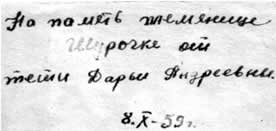 На память племянице
Шурочке от
тети Дарьи Андреевны.
8.X-59г.